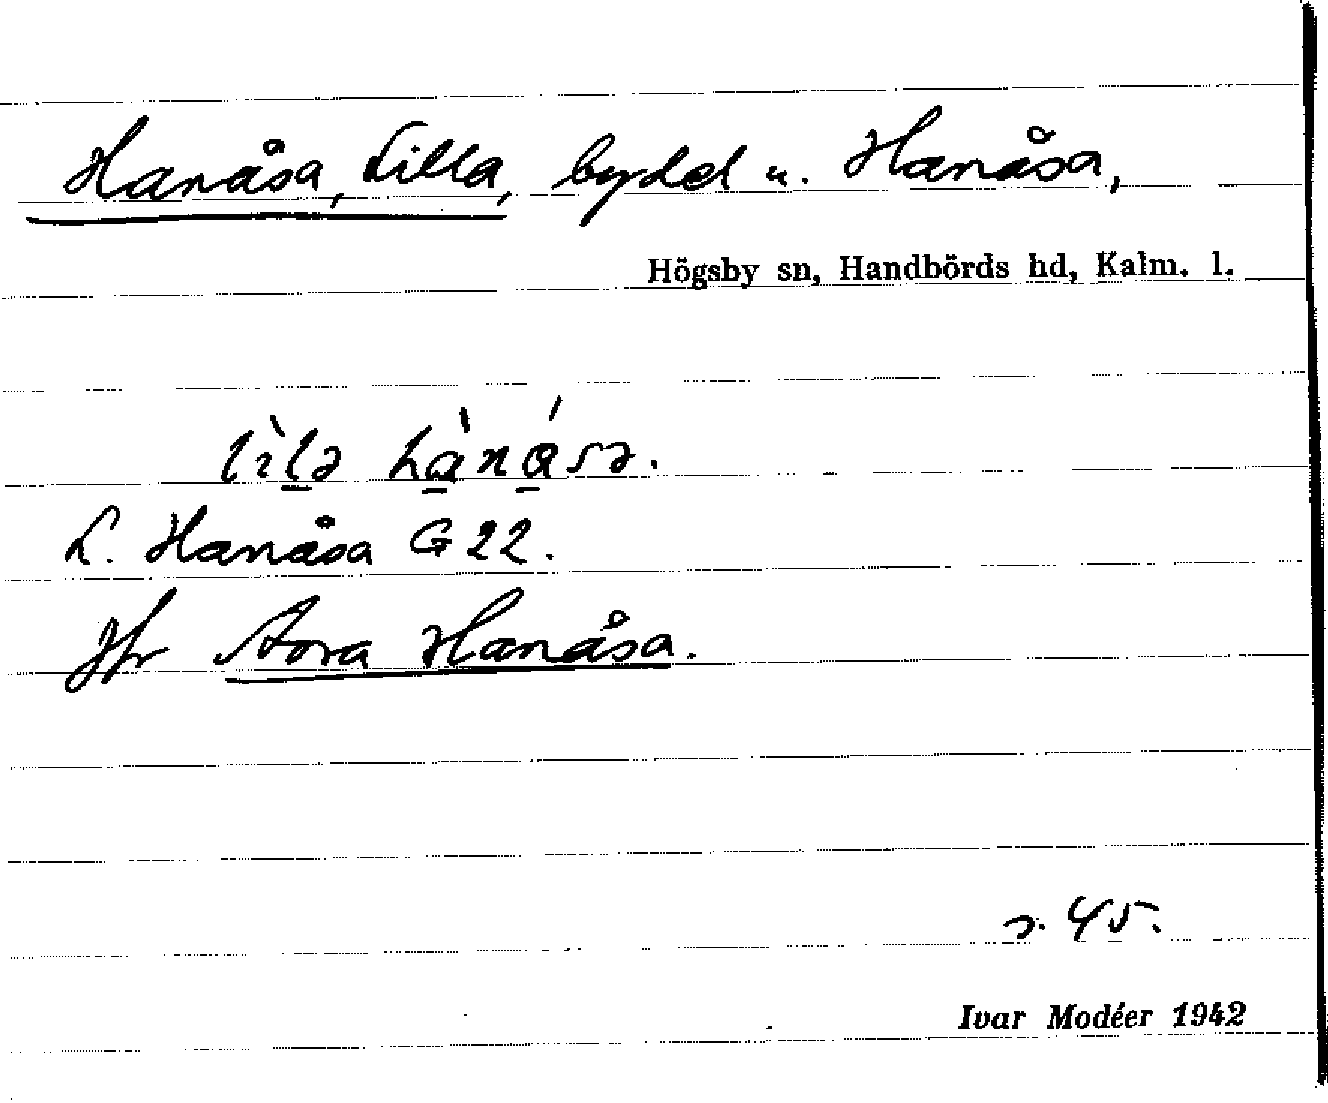 Hanåsa, Lilla, bydel u. Hanåsa,
Högsby sn, Handbörds hd, Kalm. l.
lìlə hànása.
L. Hanåsa G 22.
Jfr Stora Hanåsa.
s. 45.
Ivar Modéer 1942